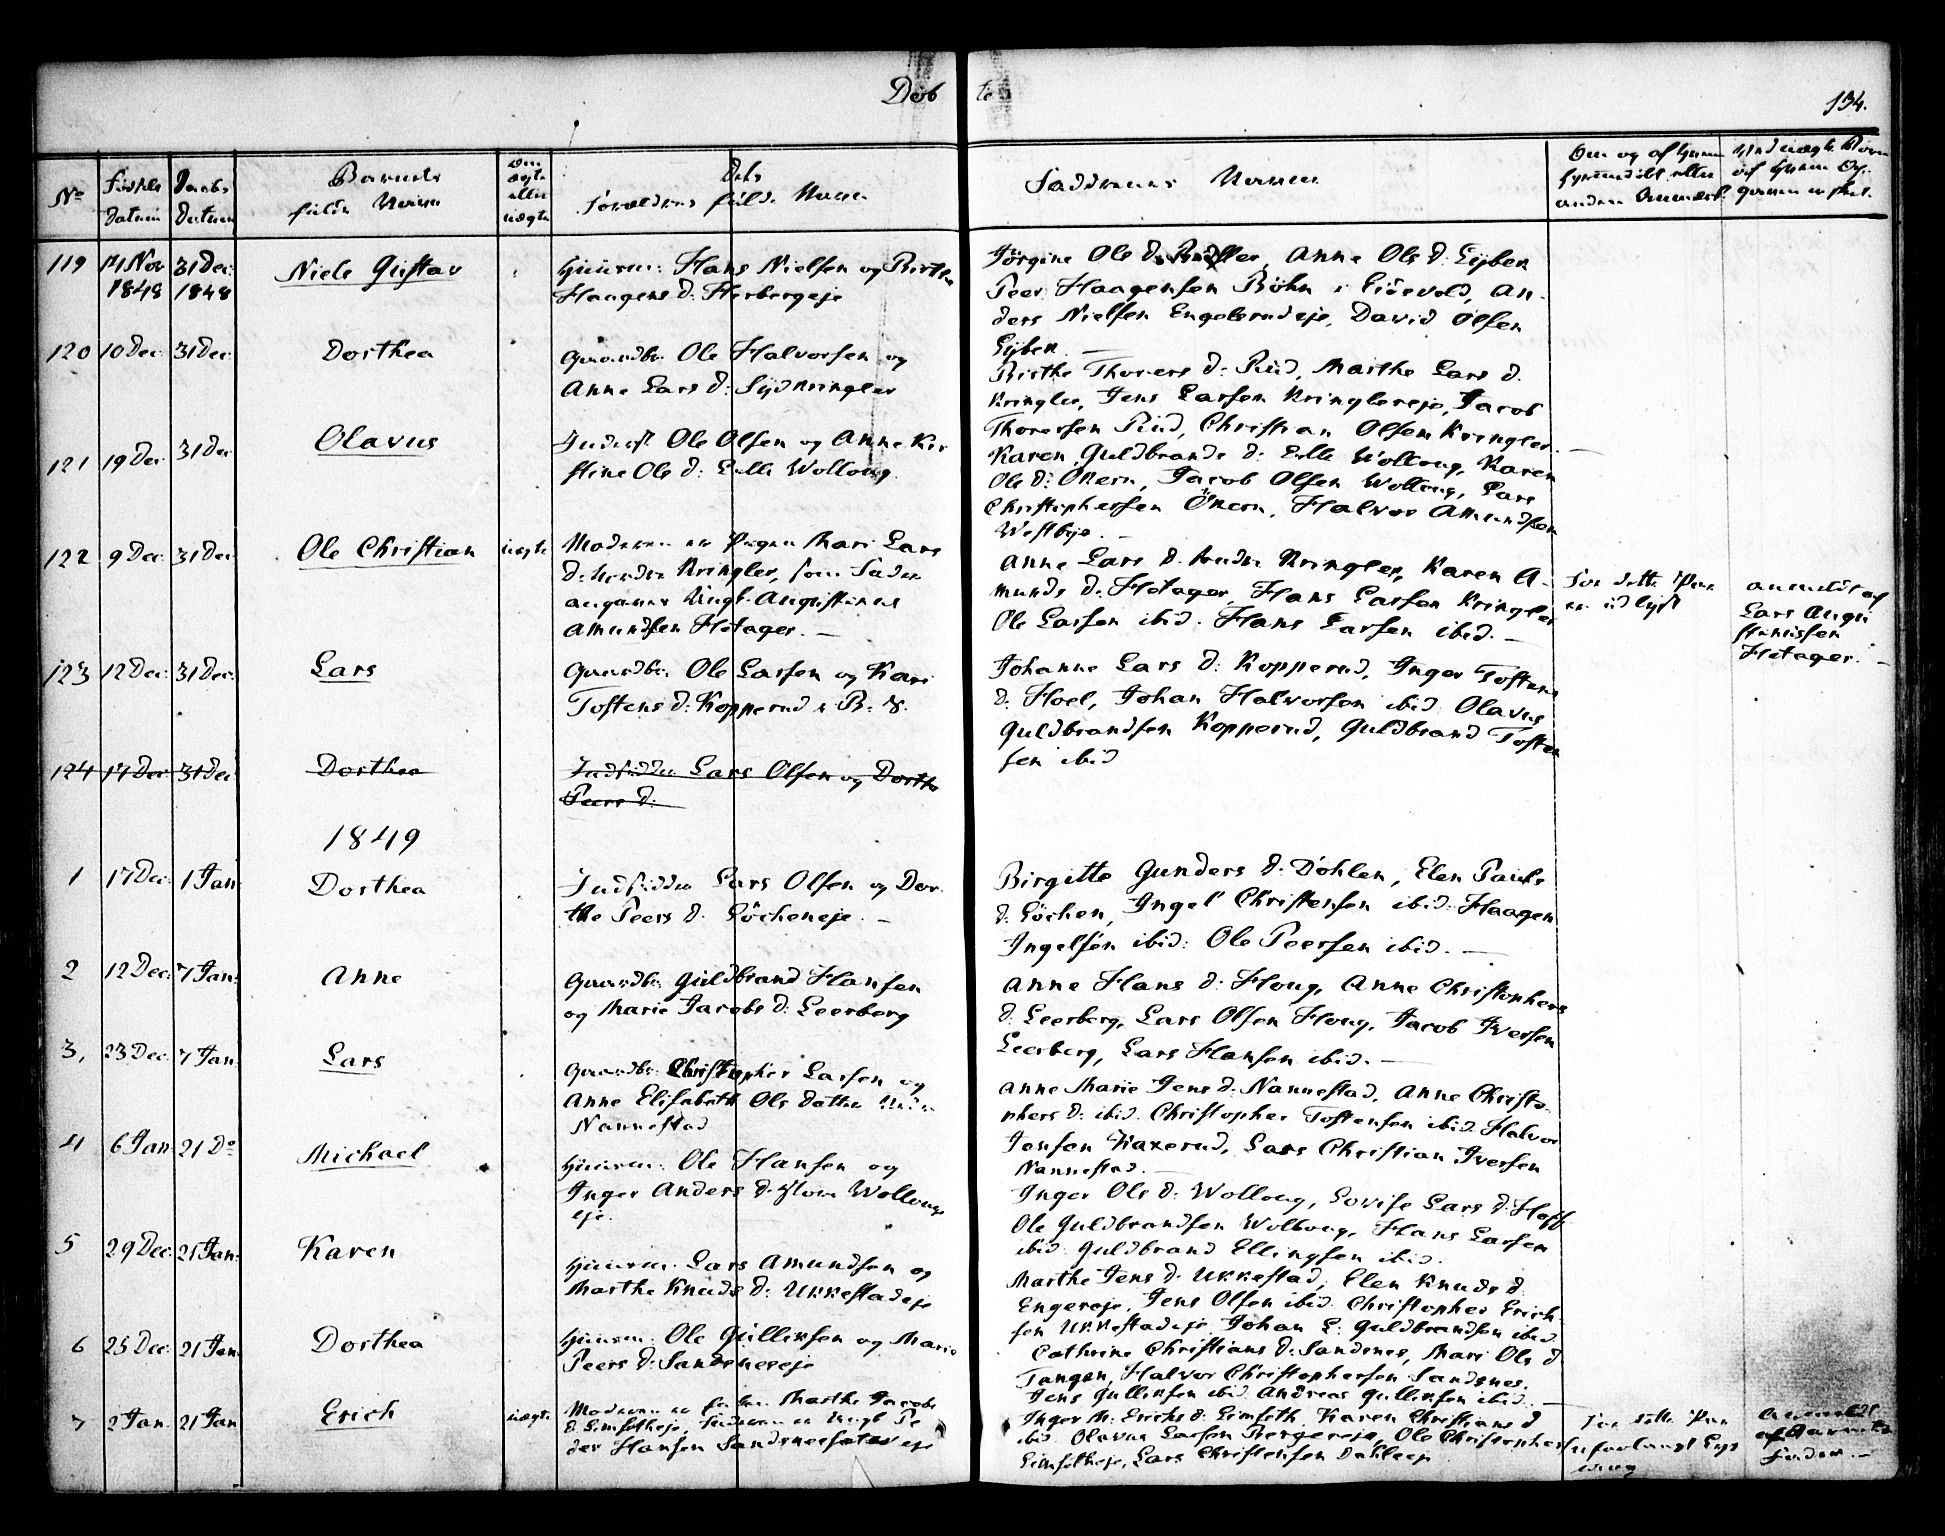 Døb
te
134.
No
Fødsels
datum
Daabs
datum
Barnets
fulde Navn
Om
ægte
eller
uægte
Dets
Forældres fulde Navne
Faddernes Navne
119
14 Nov
1848
31 Dec:
1848
Niels Gustav
Huusm: Hans Nielsen og Birthe
Haagens d: Herbergeje
Jörgine Ols d: Anne Ols d: Eyben
Peer Haagensen Böhn i Eidsvold, An-
ders Nielsen Engelsrudeje, David Olsen
Eyben
120
10 Dec:
31 Dec:
Dorthea
Gaardbr: Ole Halvorsen og
Anne Lars d: Sydkringler
Birthe Thorers d: Rud, Marthe Lars d.
Kringler, Jens Larsen Kringlereje, Jacob
Thorersen Rud, Christian Olsen Kringler.
121
19 Dec
31 Dec
Olavus
Inderst Ole Olsen og Anne Kir
stine Ols d: Lille Wolloug.
Karen Guldbrands d: Lille Wolloug, Karen
Ols d: Ökern, Jacob Olsen Wolloug, Lars
Christophersen Ökern, Halvor Amundsen
Westbye.
122
9 Dec
31 Dec
Ole Christian
uægte
Moderen er Pigen Mari Lars
d: Kringler, som Fader
angives Ungk: Augustinus
Amundsen Hotager. —
Anne Lars d. Kringler, Karen A-
munds d: Hotager, Hans Larsen Kringler
Ole Larsen ibid. Hans Larsen ibid. —
For dette Barn
er udlyst
anmeldt af
Lars Augu
stinussen
Hotager. —
123
12 Dec:
31 Dec:
Lars
Gaardbr: Ole Larsen og Kari
Tostens d: Kopperud
Johanne Lars d: Kopperud, Inger Tostens
d: Hoel, Johan Halvorsen ibid. Olavus
Guldbrandsen Kopperud, Guldbrand Tosten
sen ibid
124
17 Dec:
31 Dec
Dorthea
Indsidder Lars Olsen og Dorthe
Peers d:
1849
1
17 Dec:
1 Jan:
Dorthea
Indsidder Lars Olsen og Dor-
the Peers d. Löcheneje. —
Birgitte Gunders d: Döhlen, Elen Pauls
d: Löchen, Ingel Christensen ibid. Haagen
Ingelsen ibid: Ole Peersen ibid. —
2
12 Dec:
7 Jan:
Anne
Gaardbr: Guldbrand Hansen
og Marie Jacobs d: Leerberg
Anne Hans d: Houg, Anne Christophers
d: Leerberg, Lars Olsen Houg, Jacob Iversen
Leerberg, Lars Hansen ibid. —
3,
23 Dec:
7 Jan:
Lars
Gaardbr: Christopher Larsen og
Anne Elisabeth Ols datter
Nannestad
Anne Marie Jens d: Nannestad, Anne Christo-
phers d: ibid. Christopher Tostensen ibid. Halvor
Jensen Haxerud, Lars Christian Iversen
Nannestad. —
4
6 Jan
21 Do
Michael
Huusm: Ole Hansen og
Inger Anders d: Store Wolloug
eje.
Inger Ols d: Wolloug, Lovise Lars d: Hoff
Ole Guldbrandsen Wolloug, Hans Larsen
ibid. Guldbrand Ellingsen ibid.
5
29 Dec:
21 Jan:
Karen
Huusm: Lars Amundsen og
Marthe Knuds d: Ukkestadeje
Marthe Jens d: Ukkestad, Elen Knuds d
Engereje, Jens Olsen ibid. Christopher Erich-
sen Ukkestadeje Johan L: Guldbrandsen ibid.
6
25 Dec:
21 Jan.
Dorthea
Huusm: Ole Gulliksen og Marie
Peers d: Sandsneseje
Cathrine Christians d: Sandsnes, Mari Ols d
Tangen, Halvor Christophersen Sandsnes.
Jens Gulliksen ibid. Andreas Gulliksen ibid. —
7
2 Jan.
21 Jan
Erich
uægte
Moderen er Marthe Jacobs
d. Limsetheje, Faderen er Ungk: Pe
der Hansen
Inger M: Erichs d: Limseth, Karen Christians d
ibid. Olavus Larsen Bergereje, Ole Christophers
Limsetheje, Lars Christensen Dahleeje
For dette Barn
er forlangt Lys
ning
Anmeldt
af Barnets
Fader. —